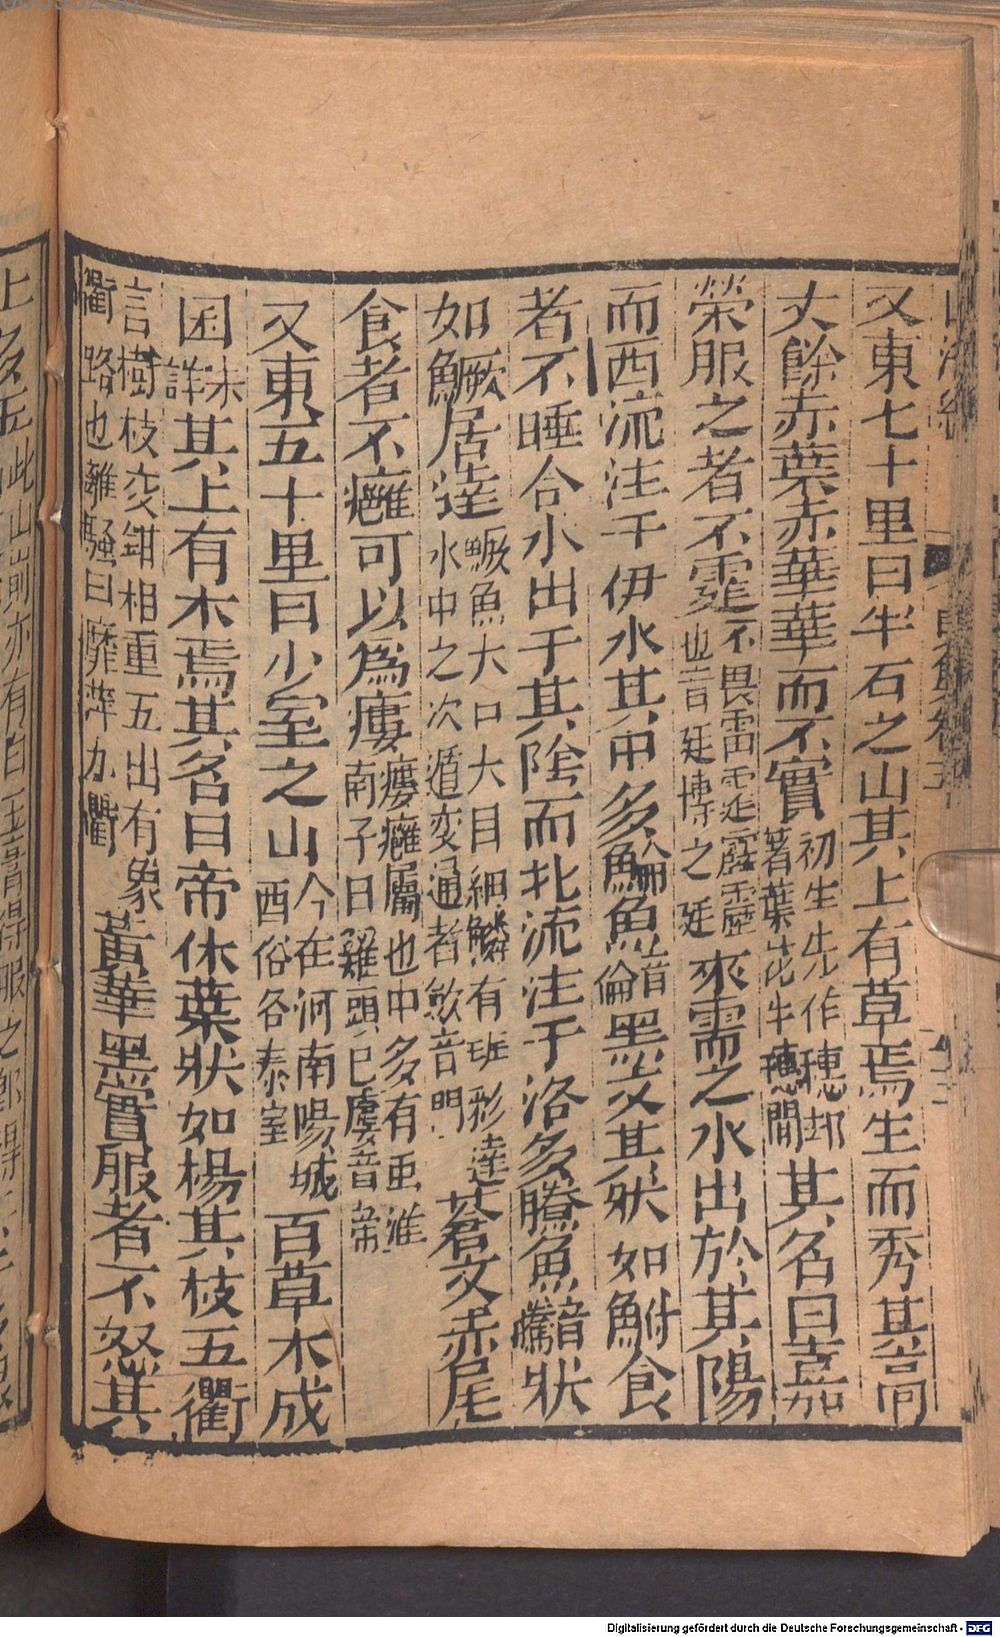 又東七十里曰半石之山其上有草焉生而秀其高
丈餘赤葉赤華華而不實初生先作穗却著葉花生穗間其名曰嘉
榮服之者不霆不畏雷霆霹靂也音廷搏之廷來需之水出於其陽
而西流注于伊水其中多鯩魚音倫黑文其狀如鮒食
者不睡合水出于其陰而北流注于洛多䲢魚音騰狀
如鱖居逵鱖魚大口大目細鱗有班彩逵水中之次遁变通者欤音門蒼文赤尾
食者不癰可以為瘻瘻癰屬也中多有虫淮南子曰雞頭已瘻音帝
又東五十里曰少室之山今在河南陽城西俗各泰室百草木成
囷未詳其上有木焉其名曰帝休葉狀如楊其枝五衢
言樹枝交錯相重五出有象衢路也離騷曰靡萍九衢黃華黑實服者不怒其
Digitalisierung gefördert durch die Deutsche Forschungsgemeinschaft - DFG